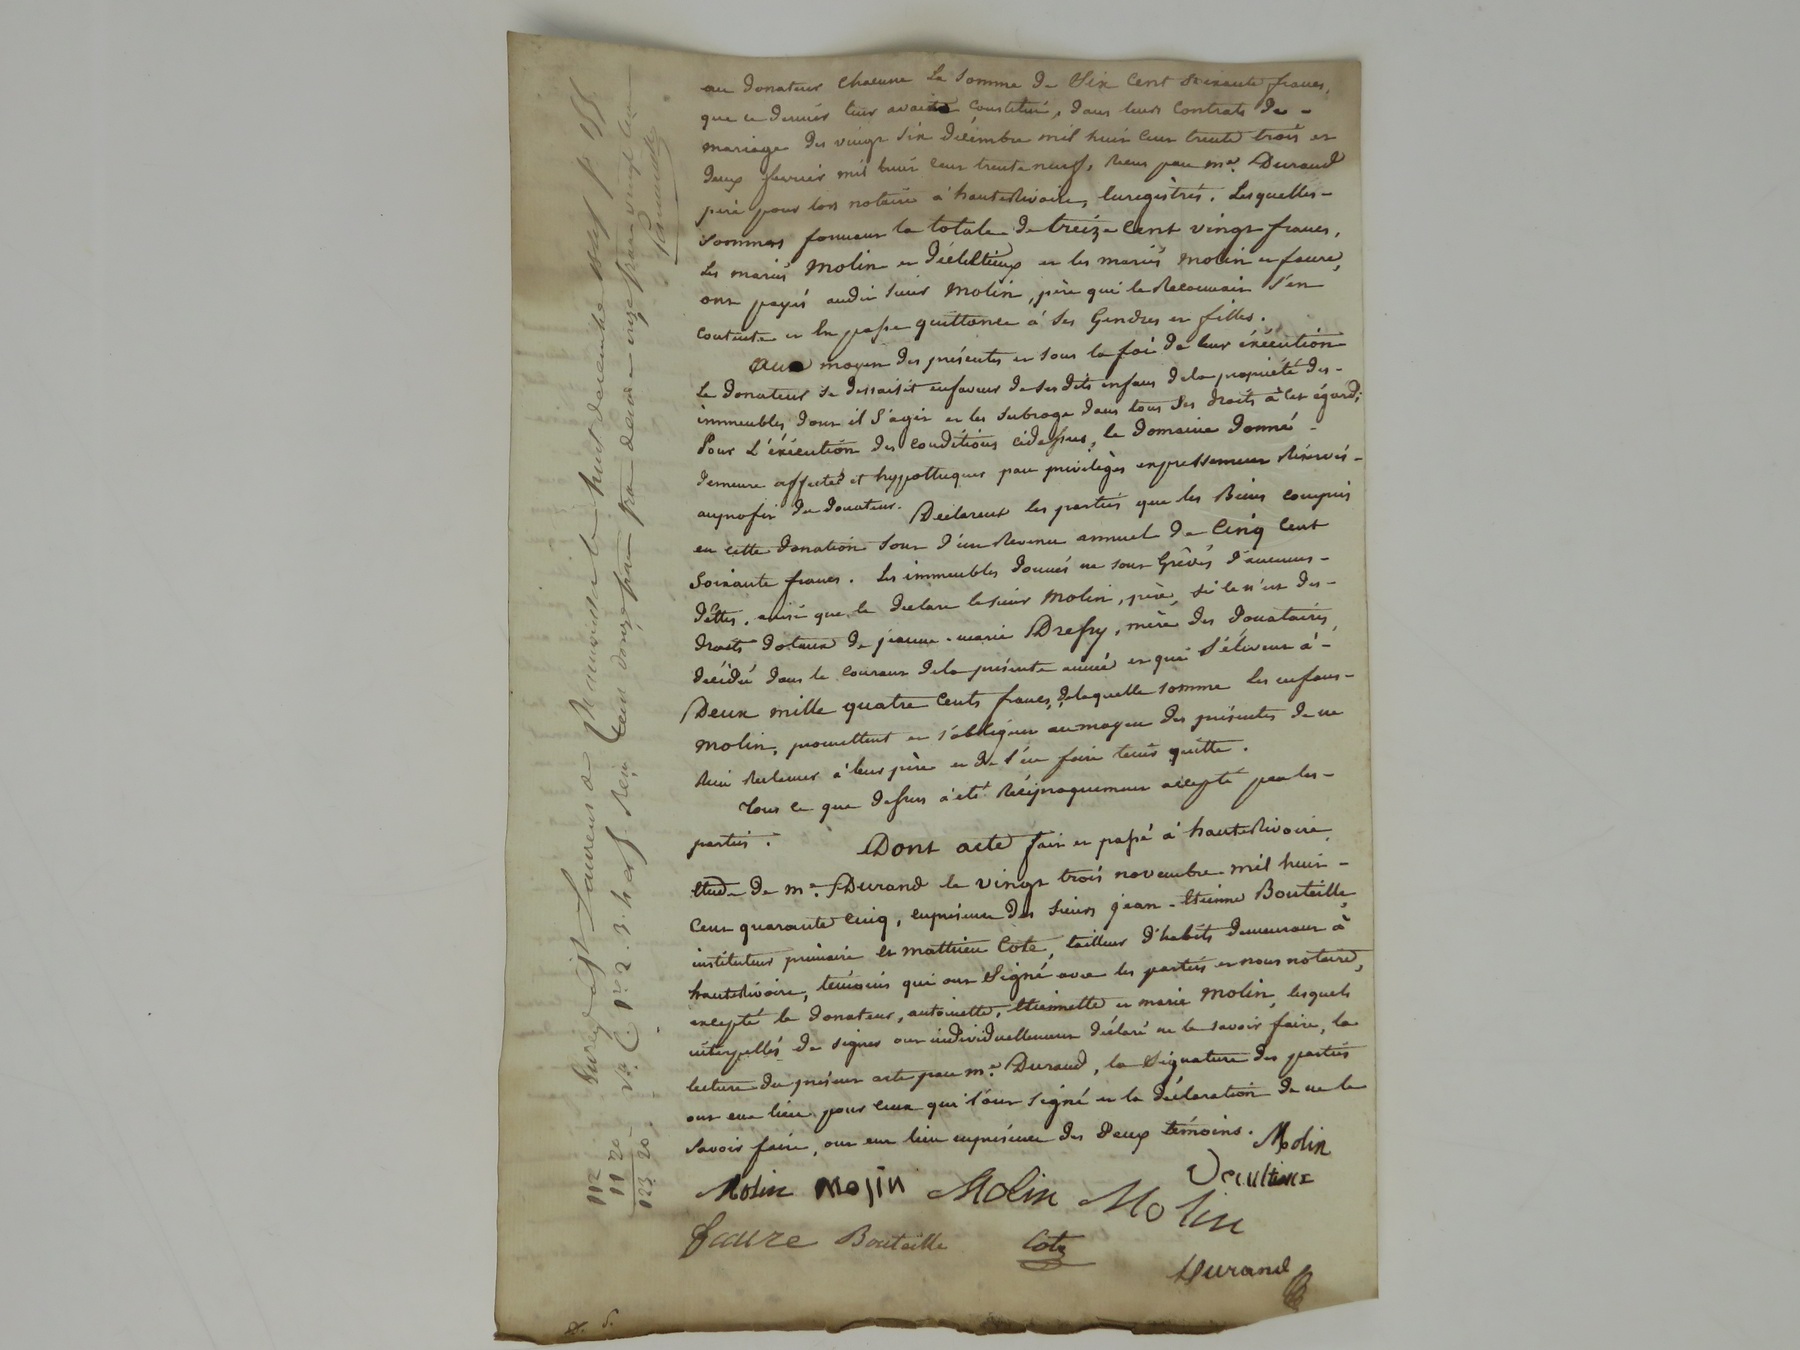 au donateur chacune la somme de Six Cent Soixante francs,
que ce dernier leur avait constitué, dans leurs Contrats de -
mariage des vingt six décembre mil huit cent trente trois et
deux février mil huit cent trente neuf, reçus par me. Durand
père pour lors notaire à hauteRivoire, enregistrés. Lesquelles -
sommes formant la totale de treize Cent vingt francs,
les mariés Molin et et les mariés Molin et faure,
ont payés audit sieur Molin, père qui le Reconnait s'en
contente et en passe quittance à ses Gendres et filles.
Au moyen des présentes et sous la foi de leur éxécution
le donateur se dessaisit enfaveur de ses dits enfans dela propriété des -
immeubles dont il s'agit et les subroge dans tous ses droits à cet égard;
Pour l'éxécution des conditions cidessus, le domaine donné -
demeure affecté et hypothequés par privilèges expressement Réservés -
auprofit du donateur. Déclarent les parties que les Biens compris
en cette donation sont d'un Revenu annuel de Cinq Cent
Soixante francs. Les immeubles donnés ne sont Grêvés d'aucunes -
dettes, ainsi que le declare le sieur Molin, père, si ce n'est des -
droits dotaux de jeanne-marie Drefry, mère des donataires,
décédée dans le courant dela présente année et qui s'élèvent à -
Deux mille quatre Cents francs, delaquelle somme les enfans -
Molin, promettent et s'obligent aumoyen des présentes de ne
Rien Reclamer à leur père et de l'en faire tenir quitte.
Tout ce que dessus a été Réciproquement accepté par les -
parties. Dont acte fait et passé à hauteRivoire,
Etude de me. Durand le vingt trois novembre mil huit -
Cent quarante cinq, enprésence des sieurs jean-Etienne Bouteille,
instituteur primaire et mathieu Cote, tailleur d'habits demeurant à
hauteRivoire, témoins qui ont Signé avec les parties et nous notaire,
excepté le donateur, antoinette, Etiennette et marie Molin, lesquels
interpellés de signer ont individuellement déclaré ne le savoir faire, la
lecture du présent acte par me. Durand, la Signature des parties
ont eue lieu pour ceux qui l'ont signé et la déclaration de ne le
savoir faire, ont eu lieu enprésence des deux témoins. Molin
Molin Molin Molin Molin
faure Bouteille Cote
Durand
Enregistré à St Laurent de le huit décembre 1845 fo 155
vo. C. 1 et 2. 3. h et f. Reçu Cent douze francs
112
11 20
123 20